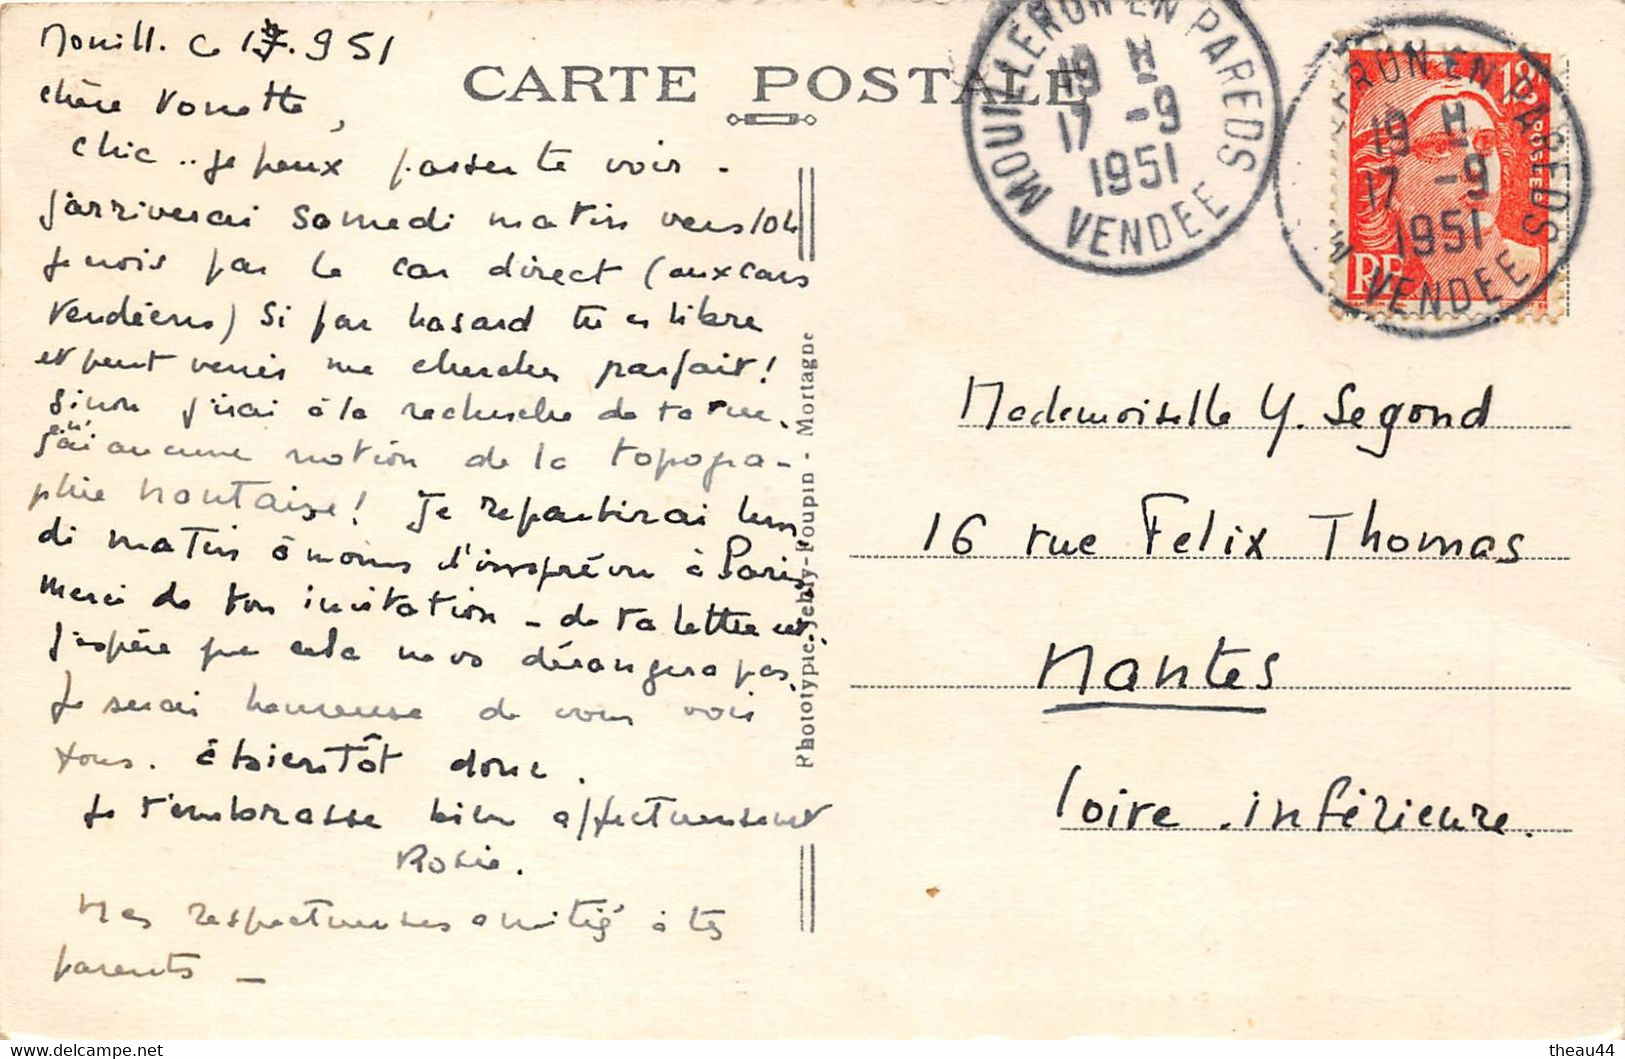 Mouill. ce 17.9 51
chère Vonette,
chic .. je peux passer te voir -
j'arriverai samedi matin vers 10h
je crois par le car direct (aux cars
Vendéens) si par hasard tu es libre
et peut venir me chercher parfait!
sinon j'irai à la recherche de ta rue.
j'ai aucune notion de la topogra-
phie nantaise! Je repartirai lun
di matin à moins d'imprévu à Paris
merci de ton invitation - de ta lettre et
j'espère que cela ne vous dérangera pas.
Je serai heureuse de vous voir
tous. à bientôt donc.
Je t'embrasse bien affectueusement
Rosie.
Mes respectueuses amitiés à tes
parents -
CARTE POSTALE
Phototypie Jehly-Poupin - Mortagne
MOUILLERON EN PAREDS
19 H
17 -9
1951
VENDEE
RON EN PAREDS
19 H
17 -9
1951
VENDEE
18F
POSTES
RF
Mademoiselle Y. Segond
16 rue Felix Thomas
Nantes
Loire inférieure.
theau44